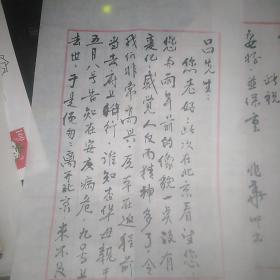 吕先生:
您老好!这次在北京看望您,
您与两年前的像貌一点没有
变化,感觉人反而精神多了,令
我们非常高兴。原本在返程前
当去府上辞行,谁知老华母亲于
五月八号告知在安庆病危,九号
去世,于是匆匆离开北京,来不及
此祝
安好并保重